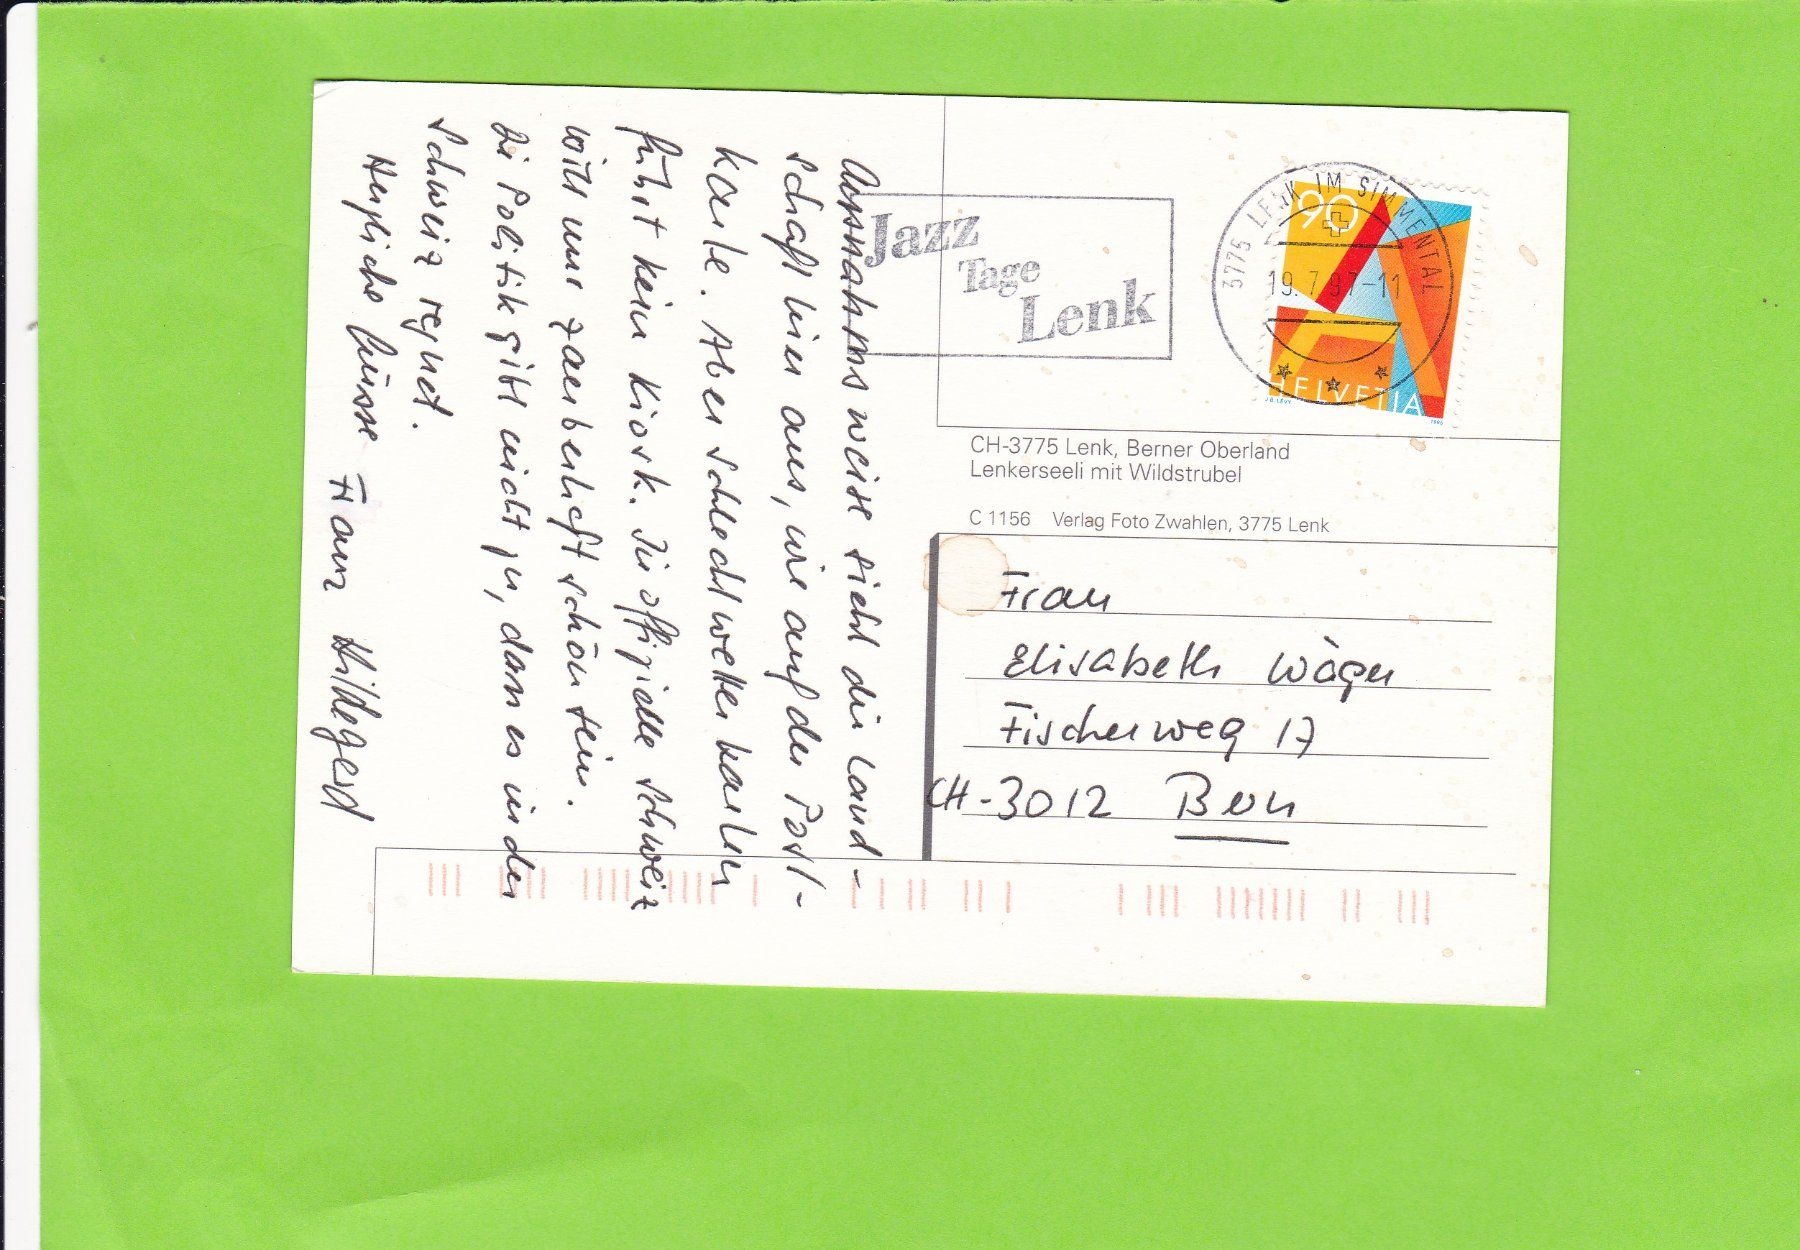 Ausnahmsweise sieht die Land-
schaft hier aus, wie auf der Post-
karte. Aber Schlechtwetterkarten
führt kein Kiosk. Die offizielle Schweiz
will nur zauberhaft schön sein.
Die Politik gibt nicht zu, dass es in der
Schweiz regnet.
Herzliche Grüsse Franz Hildegard
Jazz
Tage
Lenk
3775 LENK IM SIMMENTAL
19.7.97-11
90
HELVETIA
J.B. LEVY
1995
CH-3775 Lenk, Berner Oberland
Lenkerseeli mit Wildstrubel
C 1156 Verlag Foto Zwahlen, 3775 Lenk
Frau
Elisabeth Wäger
Fischerweg 17
CH-3012 Bern